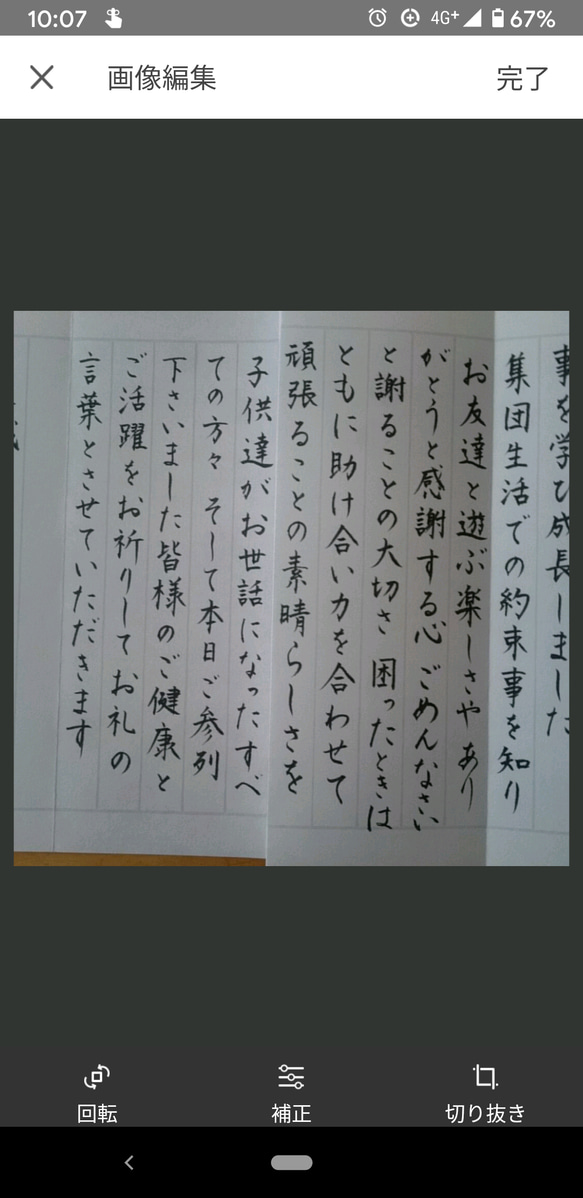 10:07
4G+
67%
画像編集
完了
事を学び成長しました
集団生活での約束事を知り
お友達と遊ぶ楽しさや あり
がとうと感謝する心 ごめんなさい
と謝ることの大切さ 困ったときは
ともに助け合い力を合わせて
頑張ることの素晴らしさを
子供達がお世話になったすべ
ての方々 そして本日ご参列
下さいました皆様のご健康と
ご活躍をお祈りしてお礼の
言葉とさせていただきます
回転
補正
切り抜き